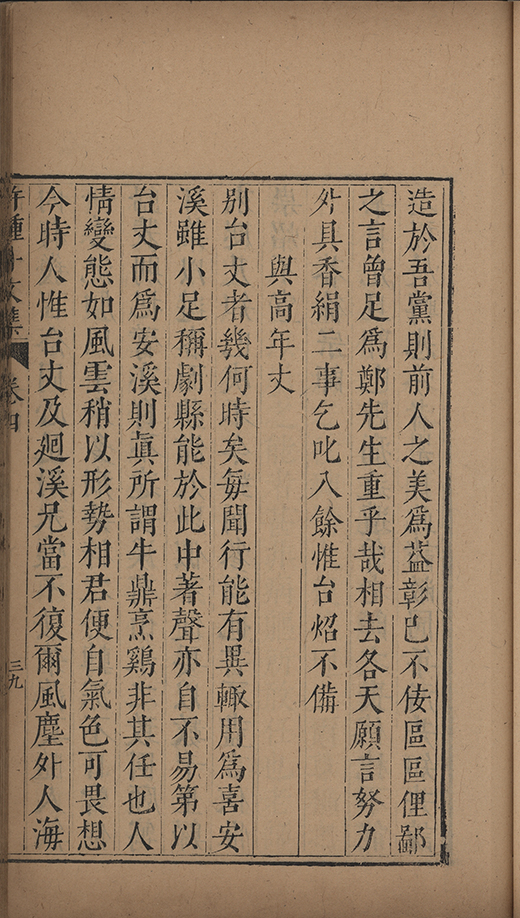 造於吾黨則前人之美爲益彰已不佞區區俚鄙
之言曾足爲鄭先生重乎哉相去各天願言努力
外具香絹二事乞叱入餘惟台炤不備
與高年丈
別台丈者幾何時矣每聞行能有異輙用爲喜安
溪雖小足稱劇縣能於此中著聲亦自不易第以
台丈而爲安溪則眞所謂牛鼎烹鷄非其任也人
情變態如風雲稍以形勢相君便自氣色可畏想
今時人惟台丈及廻溪兄當不復爾風塵外人海
許鍾斗文集 卷四 三九